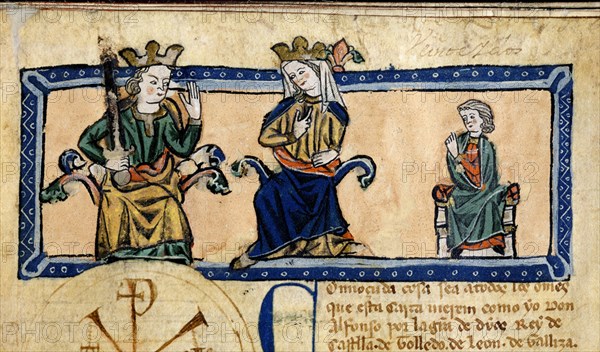 Conoçuda cosa sea atodos los omes
que esta Carta uieren como yo Don
Alfonso por la gra de dyos Rey de
Castilla. de Tolledo. de Leon. de Galliza.